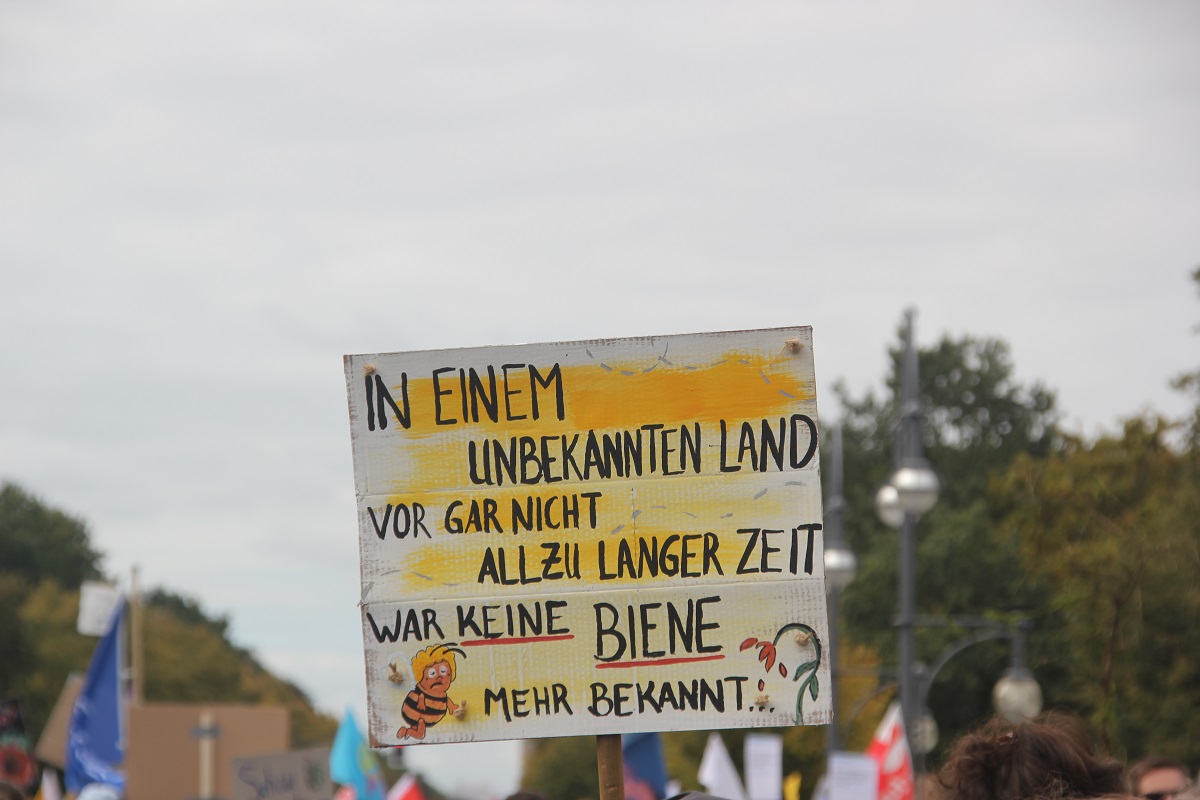 IN EINEM
UNBEKANNTEN LAND
VOR GAR NICHT
ALLZU LANGER ZEIT
WAR KEINE BIENE
MEHR BEKANNT...